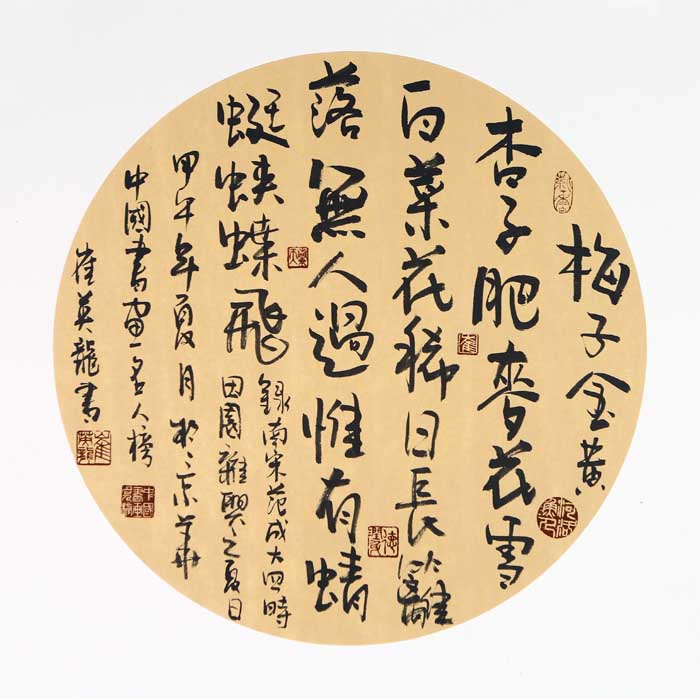 梅子金黄
杏子肥麥花雪
白菜花稀日長籬
落無人過惟有蜻
蜓蛺蝶飛
録南宋范成大四時
田園雜興之夏日
甲午年夏月於京華
中國書畫名人榜
崔英龍書
崔英龍